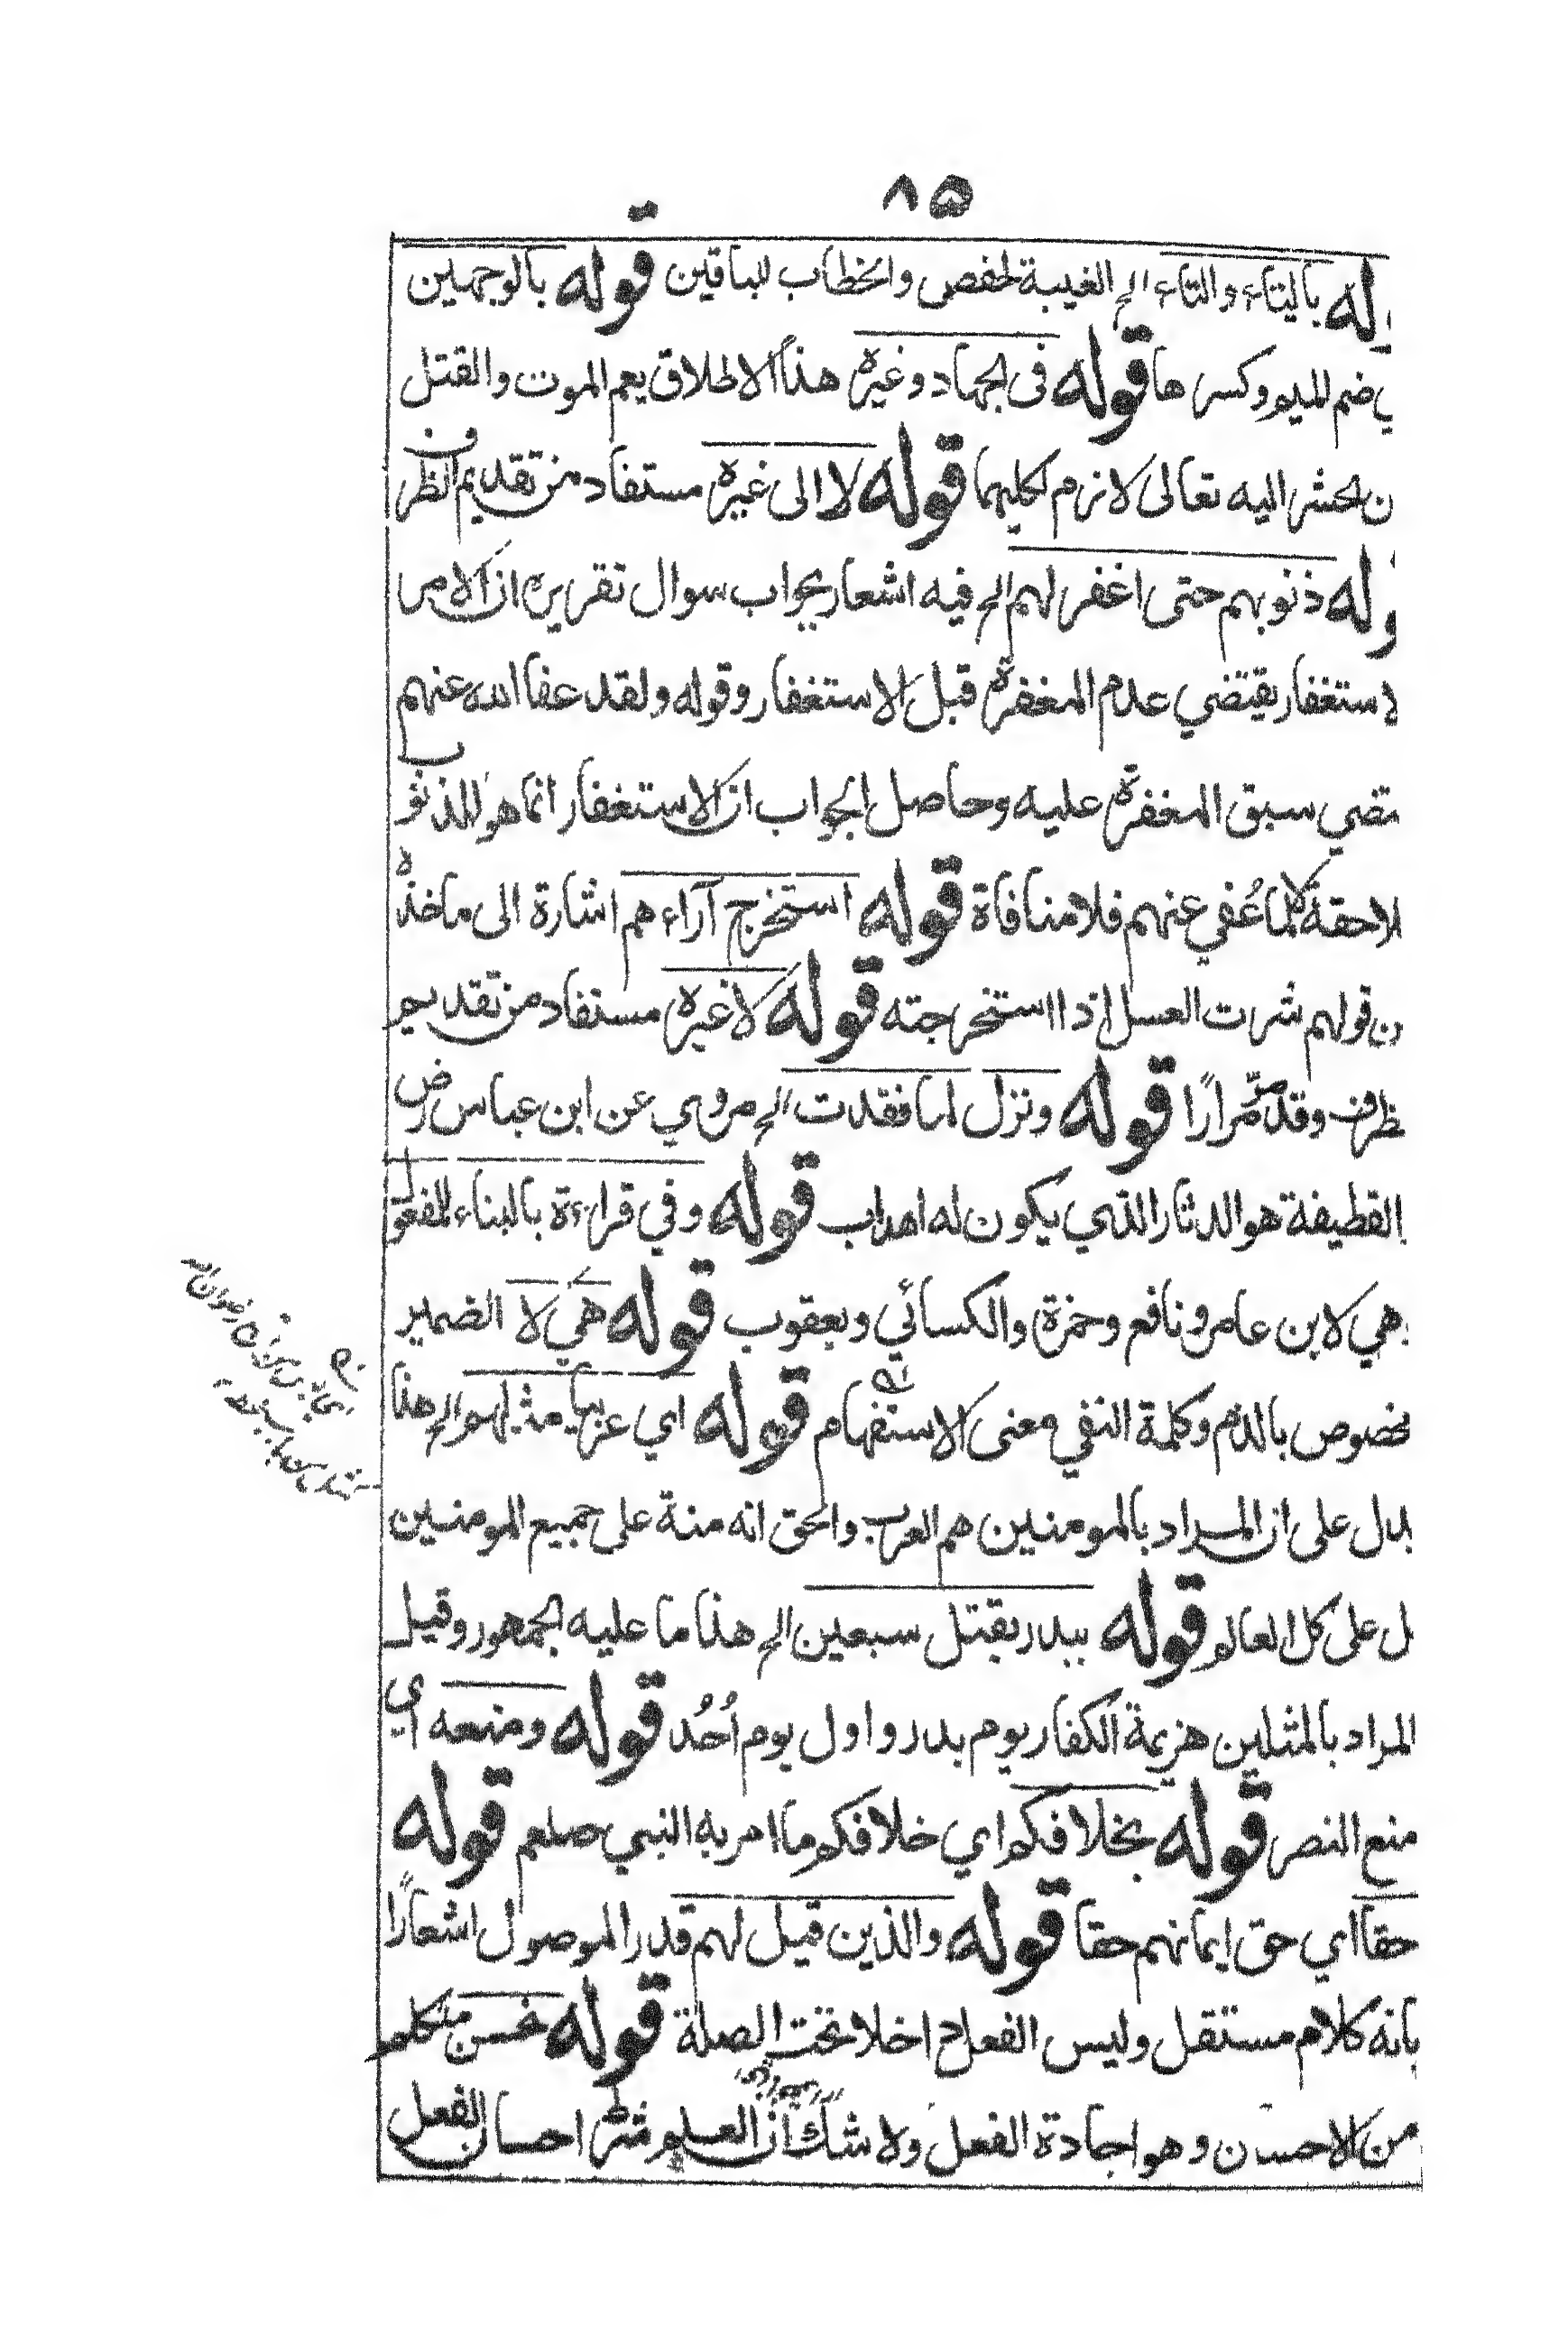 ٨٥
وله بالياء والتاء الخ الغيبة لحفص والخطاب للباقين قوله بالوجهين
ي ضم الميم وكسرها قوله في الجهاد وغيره هذا الاطلاق يعم الموت والقتل
ن الحشر اليه تعالى لازم لكليهما قوله لا الى غيره مستفاد من تقديم الظرف
وله ذنوبهم حتى اغفر لهم الخ فيه اشعار بجواب سوال تقريره ان الامر ا
لاستغفار يقتضي عدم المغفرة قبل الاستغفار وقوله ولقد عفا الله عنهم
تضي سبق المغفرة عليه وحاصل الجواب ان الاستغفار انما هو للذنوب
للاحقة لا لما عُفي عنهم فلا منافاة قوله استخرج آراءهم اشارة الى ماخذه
ن قولهم شرت العسل اذا استخرجته قوله لا غيره مستفاد من تقديم
ظرف وقد مرّ مرارًا قوله ونزل لما فقدت الخ مروي عن ابن عباس رض
القطيفة هو الدثار الذي يكون له اهداب قوله وفي قراءة بالبناء للمفعول
هي لابن عامر ونافع وحمزة والكسائي ويعقوب قوله هي لا الضمير
خصوص بالذم وكلمة النفي معنى الاستفهام قوله اي عربيا مثلهم الخ هذا
يدل على ان المراد بالمومنين هم العرب والحق انه منة على جميع المومنين
بل على كل العالم قوله ببدر بقتل سبعين الخ هذا ما عليه الجمهور وقيل
المراد بالمثلين هزيمة الكفار يوم بدر واول يوم أُحُد قوله ومنعه اي
منع النصر قوله بخلافكم اي خلافكم ما امر به النبي صلعم قوله
حقا اي حق ايمانهم حقا قوله والذين قيل لهم قدر الموصول اشعارًا
بانه كلام مستقل وليس الفعل داخلا تحت الصلة قوله نحسن متكلم
من الاحسان وهو اجادة الفعل ولا شك ان العلم شرط احسان الفعل